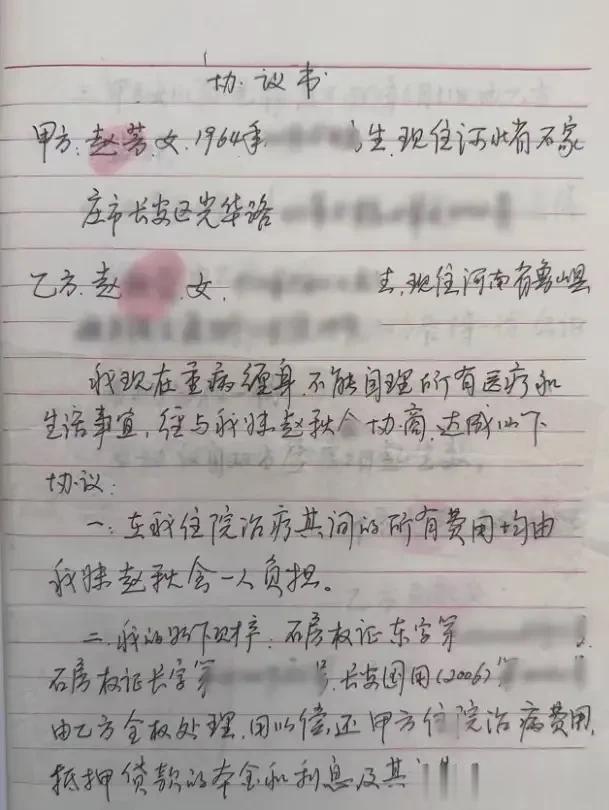 协议书
甲方:赵芳,女,1964年 生,现住河北省石家
庄市长安区光华路
乙方:赵 女, 生,现住河南省鲁山县
我现在重病缠身,不能自理所有医疗和
生活事宜,经与我妹赵秋会协商,达成以下
协议:
一:在我住院治疗其间的所有费用均由
我妹赵秋会一人负担。
二.我的名下财产:石房权证东字第
石房权证长字第 号.长安国用(2006)第
由乙方全权处理,用以偿还甲方住院治病费用,
抵押贷款的本金和利息及其